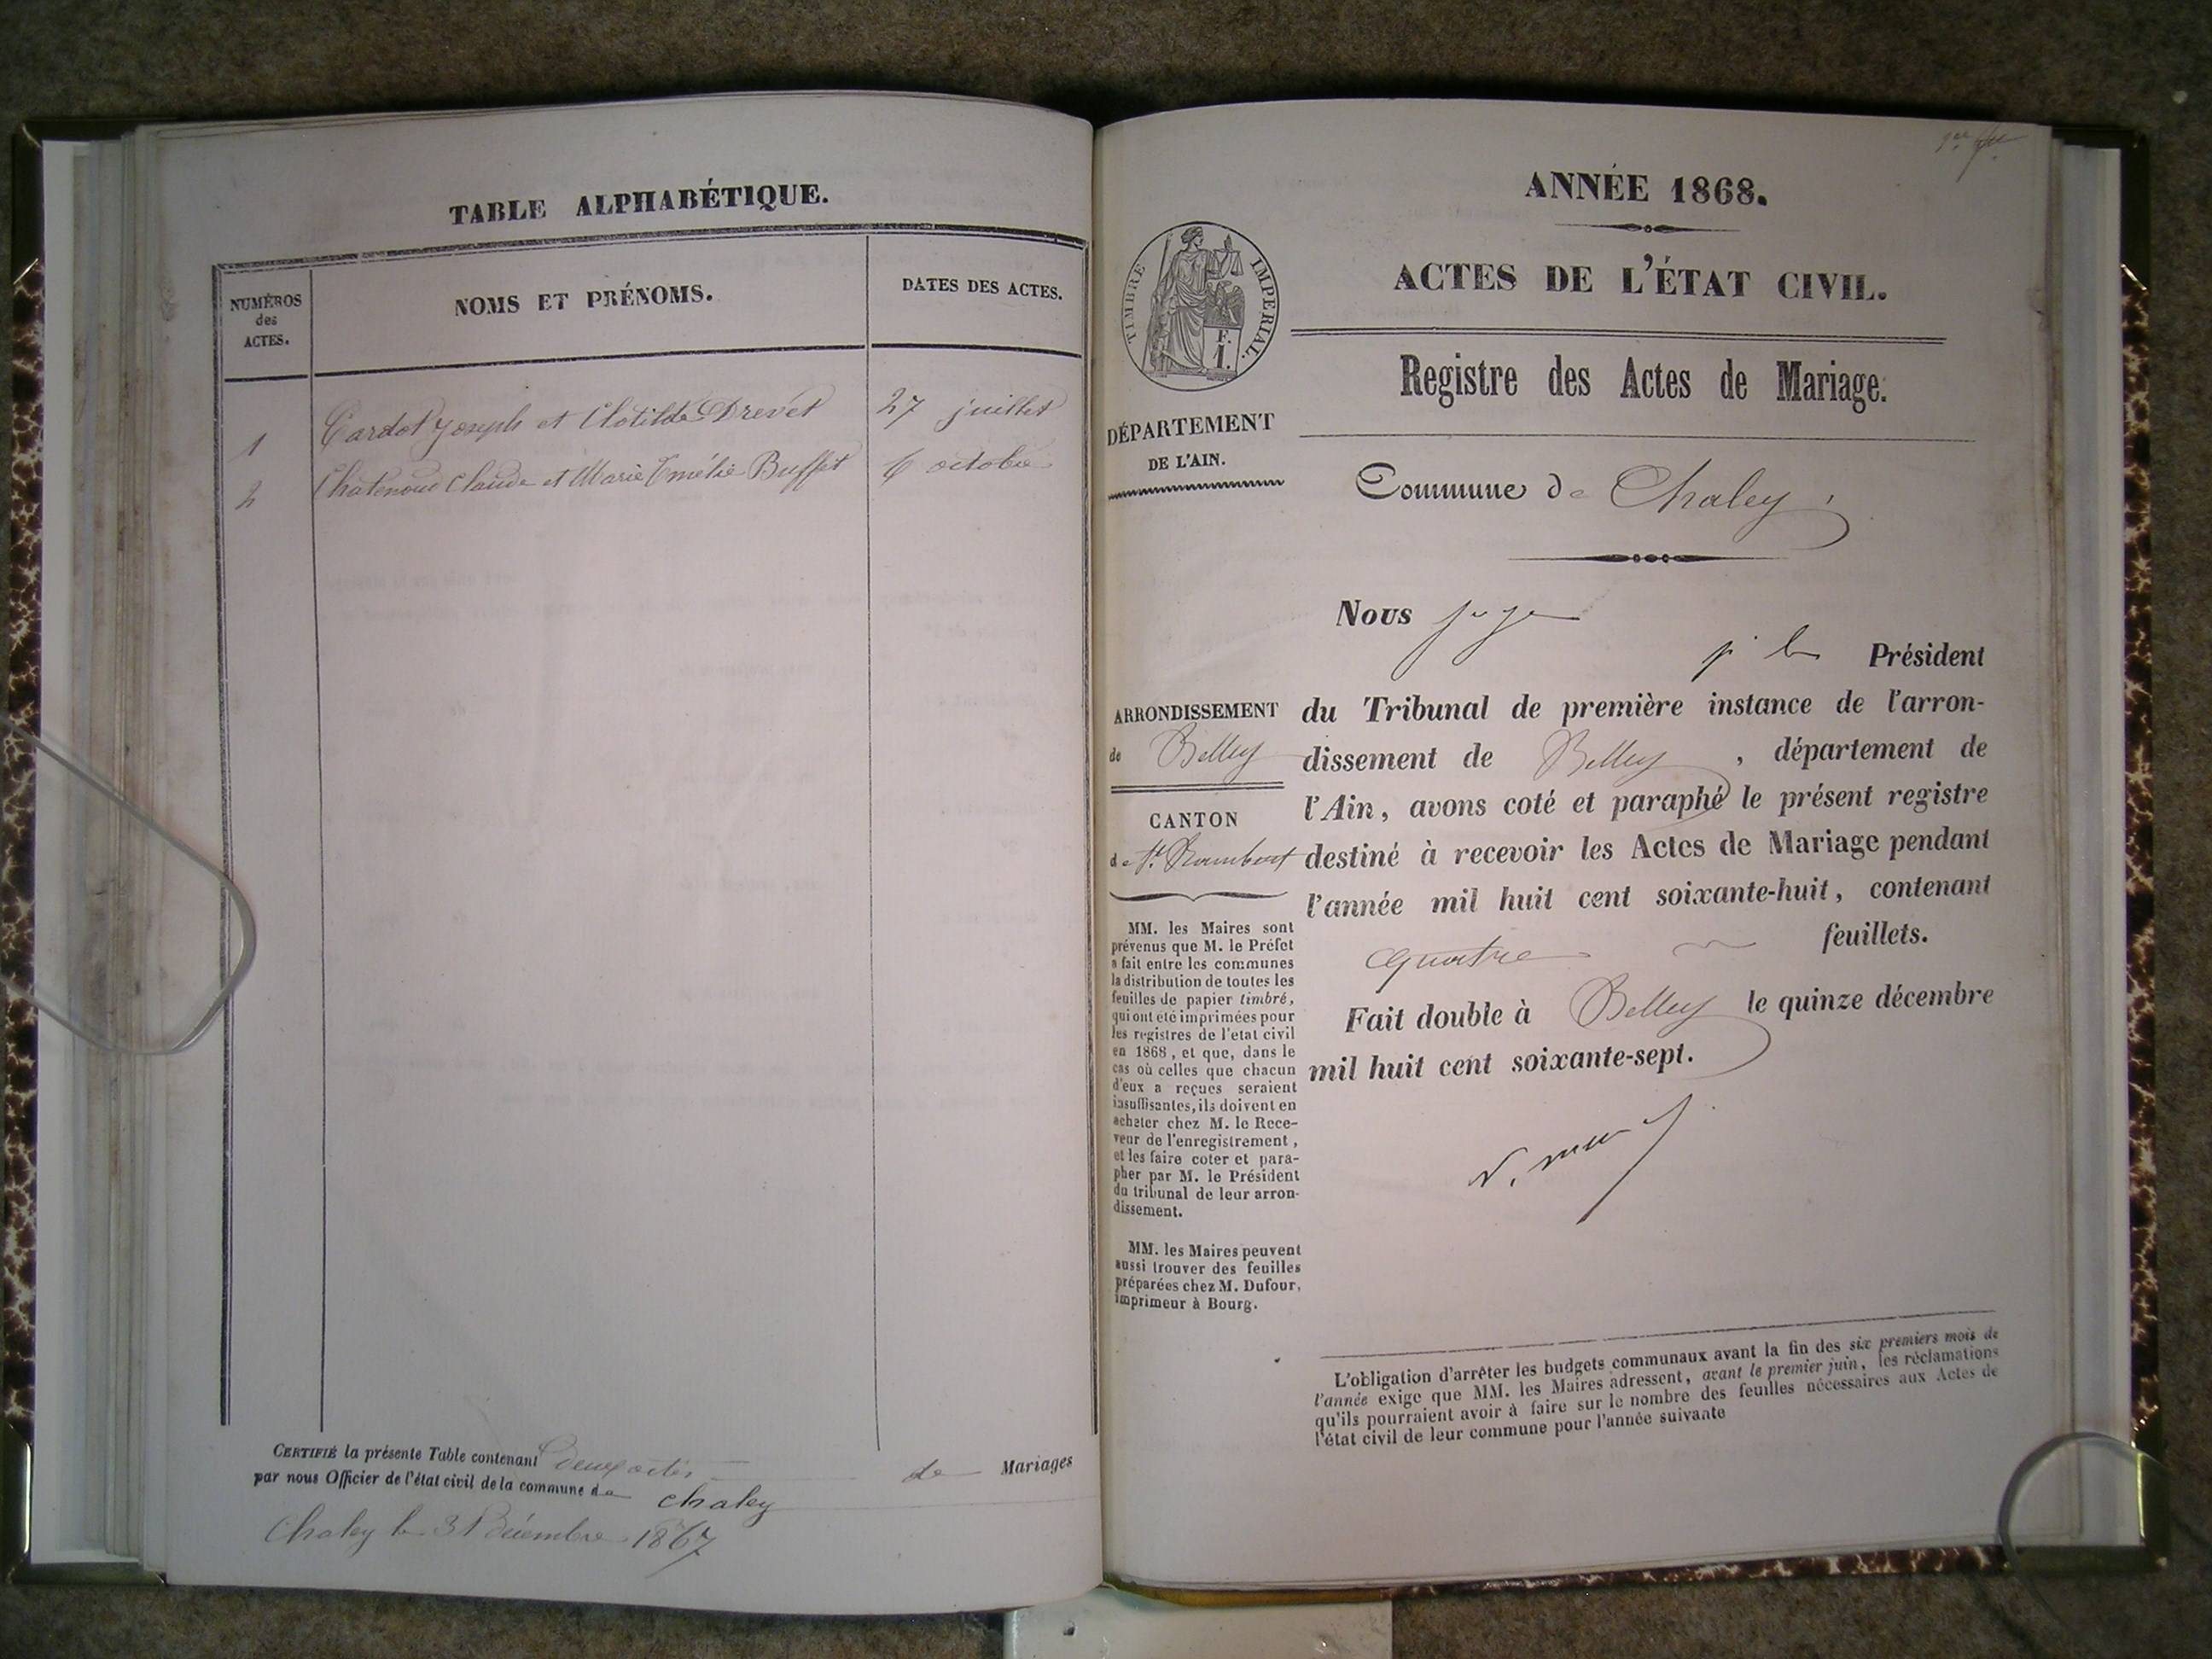 TABLE ALPHABÉTIQUE.
NUMÉROS
des
ACTES.
NOMS ET PRÉNOMS.
DATES DES ACTES.
1 Cardot Joseph et Clotilde Drevet 27 juillet
2 Chatenoud Claude et Marie Emélie Buffet 6 octobre
CERTIFIÉ la présente Table contenant Deux actes de Mariages
par nous Officier de l'état civil de la commune de chaley
Chaley le 31 Décembre 1867
ANNÉE 1868.
ACTES DE L'ÉTAT CIVIL.
TIMBRE IMPERIAL.
F.
1.
Registre des Actes de Mariage.
DÉPARTEMENT
DE L'AIN.
Commune de Chaley
ARRONDISSEMENT
de Belley
CANTON
de St. Rambert
MM. les Maires sont
prévenus que M. le Préfet
a fait entre les communes
la distribution de toutes les
feuilles de papier timbré,
qui ont été imprimées pour
les registres de l'etat civil
en 1868, et que, dans le
cas où celles que chacun
d'eux a reçues seraient
insuffisantes, ils doivent en
acheter chez M. le Rece-
veur de l'enregistrement,
et les faire coter et para-
pher par M. le Président
du tribunal de leur arron-
dissement.
MM. les Maires peuvent
aussi trouver des feuilles
préparées chez M. Dufour,
imprimeur à Bourg.
Nous juge
pr le Président
du Tribunal de première instance de l'arron-
dissement de Belley, département de
l'Ain, avons coté et paraphé le présent registre
destiné à recevoir les Actes de Mariage pendant
l'année mil huit cent soixante-huit, contenant
quatre feuillets.
Fait double à Belley le quinze décembre
mil huit cent soixante-sept.
L'obligation d'arrêter les budgets communaux avant la fin des six premiers mois de
l'année exige que MM. les Maires adressent, avant le premier juin, les réclamations
qu'ils pourraient avoir à faire sur le nombre des feuilles nécessaires aux Actes de
l'état civil de leur commune pour l'année suivante